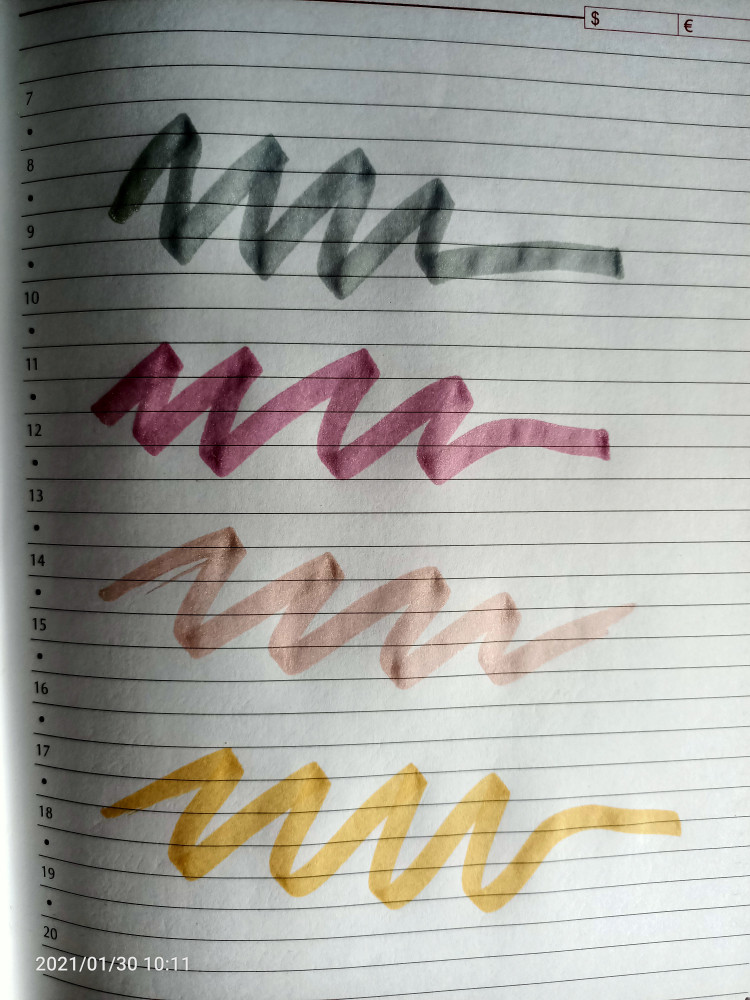 $ €
7
8
9
10
11
12
13
14
15
16
17
18
19
20
2021/01/30 10:11